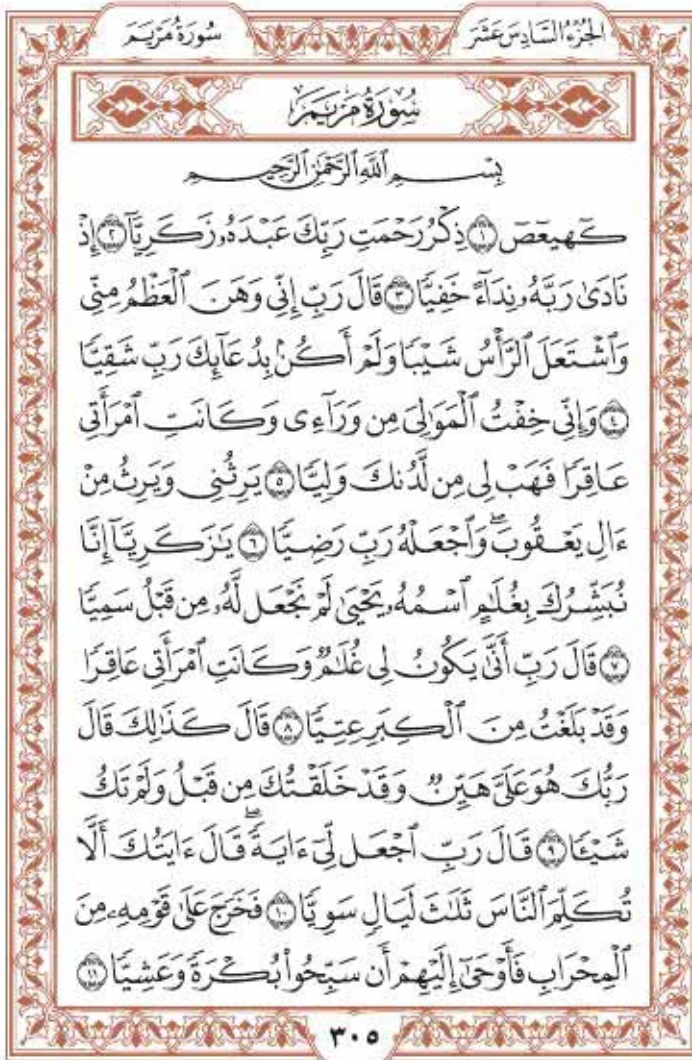 الجزء السادس عشر
سورة مريم
سورة مريم
بِسْمِ ٱللَّهِ ٱلرَّحْمَٰنِ ٱلرَّحِيمِ
كٓهيعٓصٓ ١ ذِكْرُ رَحْمَتِ رَبِّكَ عَبْدَهُۥ زَكَرِيَّآ ٢ إِذْ
نَادَىٰ رَبَّهُۥ نِدَآءً خَفِيًّا ٣ قَالَ رَبِّ إِنِّى وَهَنَ ٱلْعَظْمُ مِنِّى
وَٱشْتَعَلَ ٱلرَّأْسُ شَيْبًا وَلَمْ أَكُنۢ بِدُعَآئِكَ رَبِّ شَقِيًّا
٤ وَإِنِّى خِفْتُ ٱلْمَوَٰلِىَ مِن وَرَآءِى وَكَانَتِ ٱمْرَأَتِى
عَاقِرًا فَهَبْ لِى مِن لَّدُنكَ وَلِيًّا ٥ يَرِثُنِى وَيَرِثُ مِنْ
ءَالِ يَعْقُوبَۖ وَٱجْعَلْهُ رَبِّ رَضِيًّا ٦ يَٰزَكَرِيَّآ إِنَّا
نُبَشِّرُكَ بِغُلَٰمٍ ٱسْمُهُۥ يَحْيَىٰ لَمْ نَجْعَل لَّهُۥ مِن قَبْلُ سَمِيًّا
٧ قَالَ رَبِّ أَنَّىٰ يَكُونُ لِى غُلَٰمٌ وَكَانَتِ ٱمْرَأَتِى عَاقِرًا
وَقَدْ بَلَغْتُ مِنَ ٱلْكِبَرِ عِتِيًّا ٨ قَالَ كَذَٰلِكَ قَالَ
رَبُّكَ هُوَ عَلَىَّ هَيِّنٌ وَقَدْ خَلَقْتُكَ مِن قَبْلُ وَلَمْ تَكُ
شَيْـًٔا ٩ قَالَ رَبِّ ٱجْعَل لِّىٓ ءَايَةًۖ قَالَ ءَايَتُكَ أَلَّا
تُكَلِّمَ ٱلنَّاسَ ثَلَٰثَ لَيَالٍ سَوِيًّا ١٠ فَخَرَجَ عَلَىٰ قَوْمِهِۦ مِنَ
ٱلْمِحْرَابِ فَأَوْحَىٰٓ إِلَيْهِمْ أَن سَبِّحُوا۟ بُكْرَةً وَعَشِيًّا ١١
٣٠٥